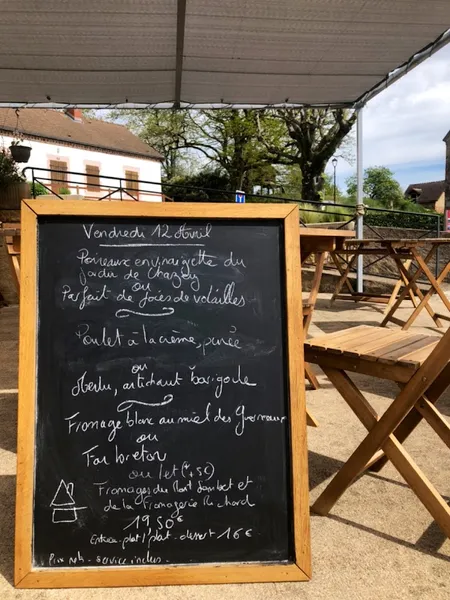 Vendredi 12 Avril
Poireaux en vinaigrette du
jardin de Chazeu
ou
Parfait de foies de volailles
Poulet à la crème, purée
ou
Merlu, artichaut barigoule
Fromage blanc au miel des
ou
Far breton
ou/et (+5€)
Fromages du Mont Jambet et
de la fromagerie Richord
19,50€
Entrée.plat / plat.dessert 16€
Prix nets - service inclus.